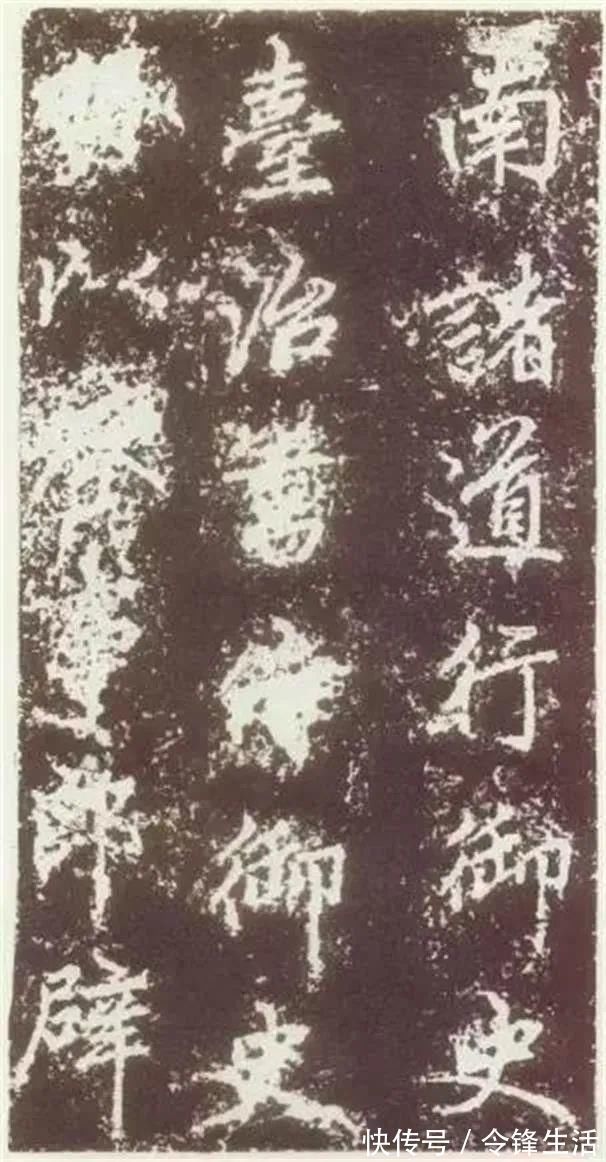 南諸道行御史
臺治書侍御史
以郎辟
快传号 / 令锋生活